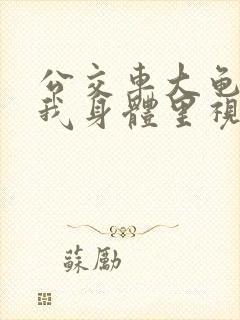 公交車大龟
我身體里視
蘇勵